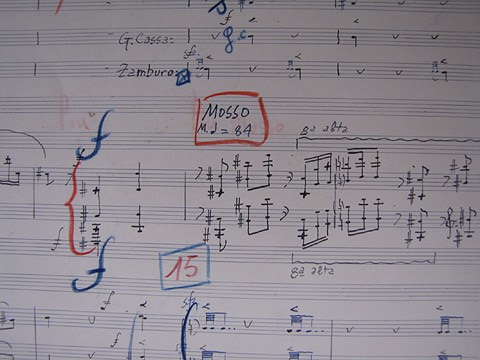 f
G. Cassa
sf
Zamburo
f
Mosso
M.♩= 84
8ª alta
f
f
15
8ª alta
f
sf
f